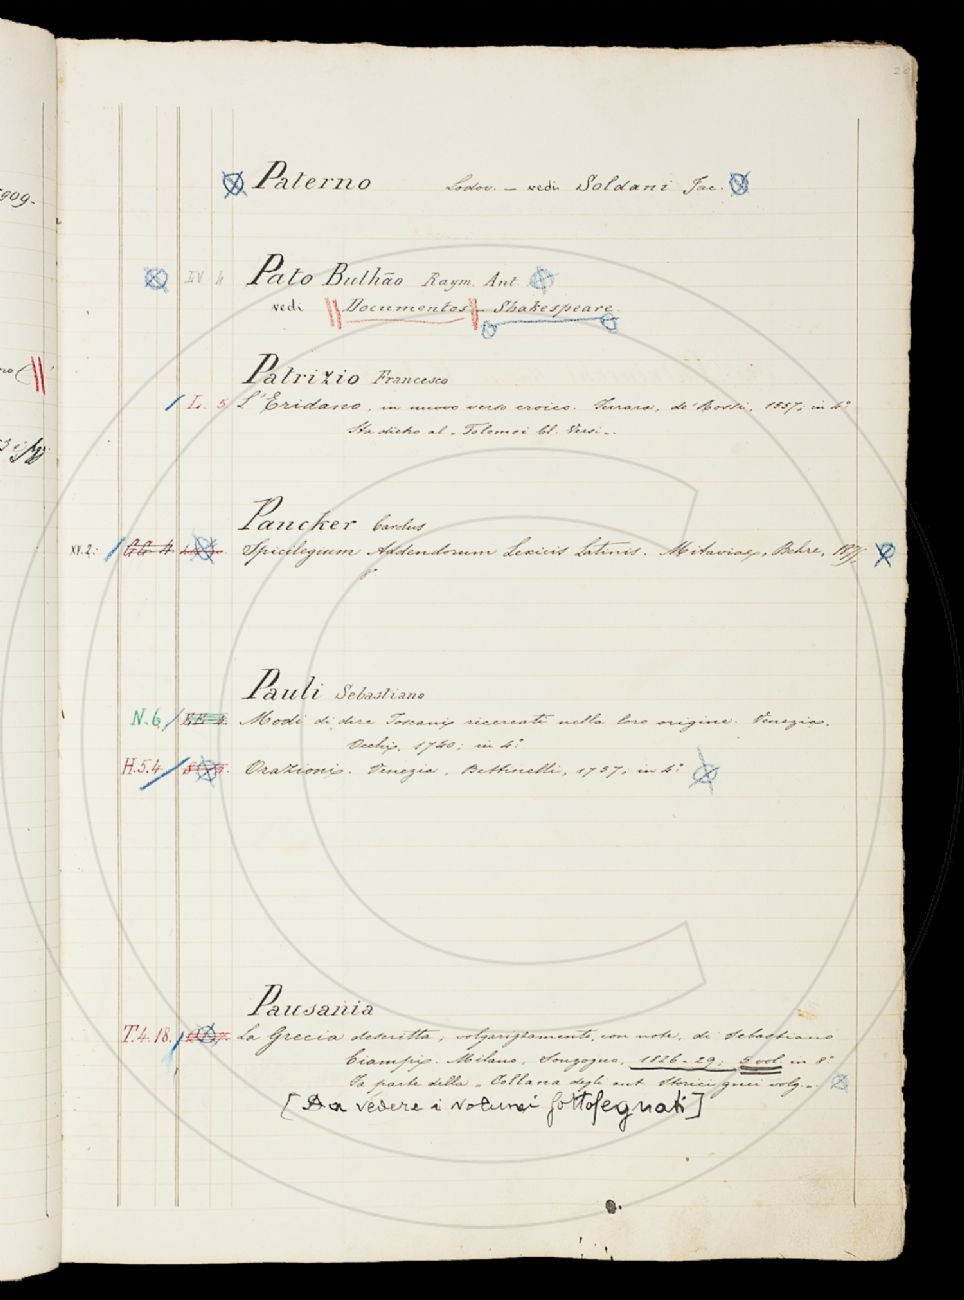 Paterno Lodov. – vedi Soldani Jac.
IV 4 Pato Bulhão Raym. Ant.
vedi Documentos – Shakespeare
Patrizio Francesco
L. 5 L'Eridano, in nuovo verso eroico. Ferrara, de' Rossi, 1557; in 4°
Sta dietro al – Tolomei Cl. Versi –.
Paucker Carolus
XV.2.: GG 4. Spicilegium Addendorum Lexicis Latinis. Mitaviae, Behre,
Pauli Sebastiano
N.6 EE 4. Modi di dire Toscani ricercati nella loro origine. Venezia,
Occhi, 1740; in 4°
H.5.4 Orazioni. Venezia, Bettinelli, 1737; in 4°
Pausania
T.4.18. La Grecia descritta, volgarizzamento, con note, di Sebastiano
Ciampi. Milano, Sonzogno, 1826-29; 5 vol. in 8°
Fa parte della "Collana degli ant. storici greci volg."
[Da vedere i volumi sottosegnati]